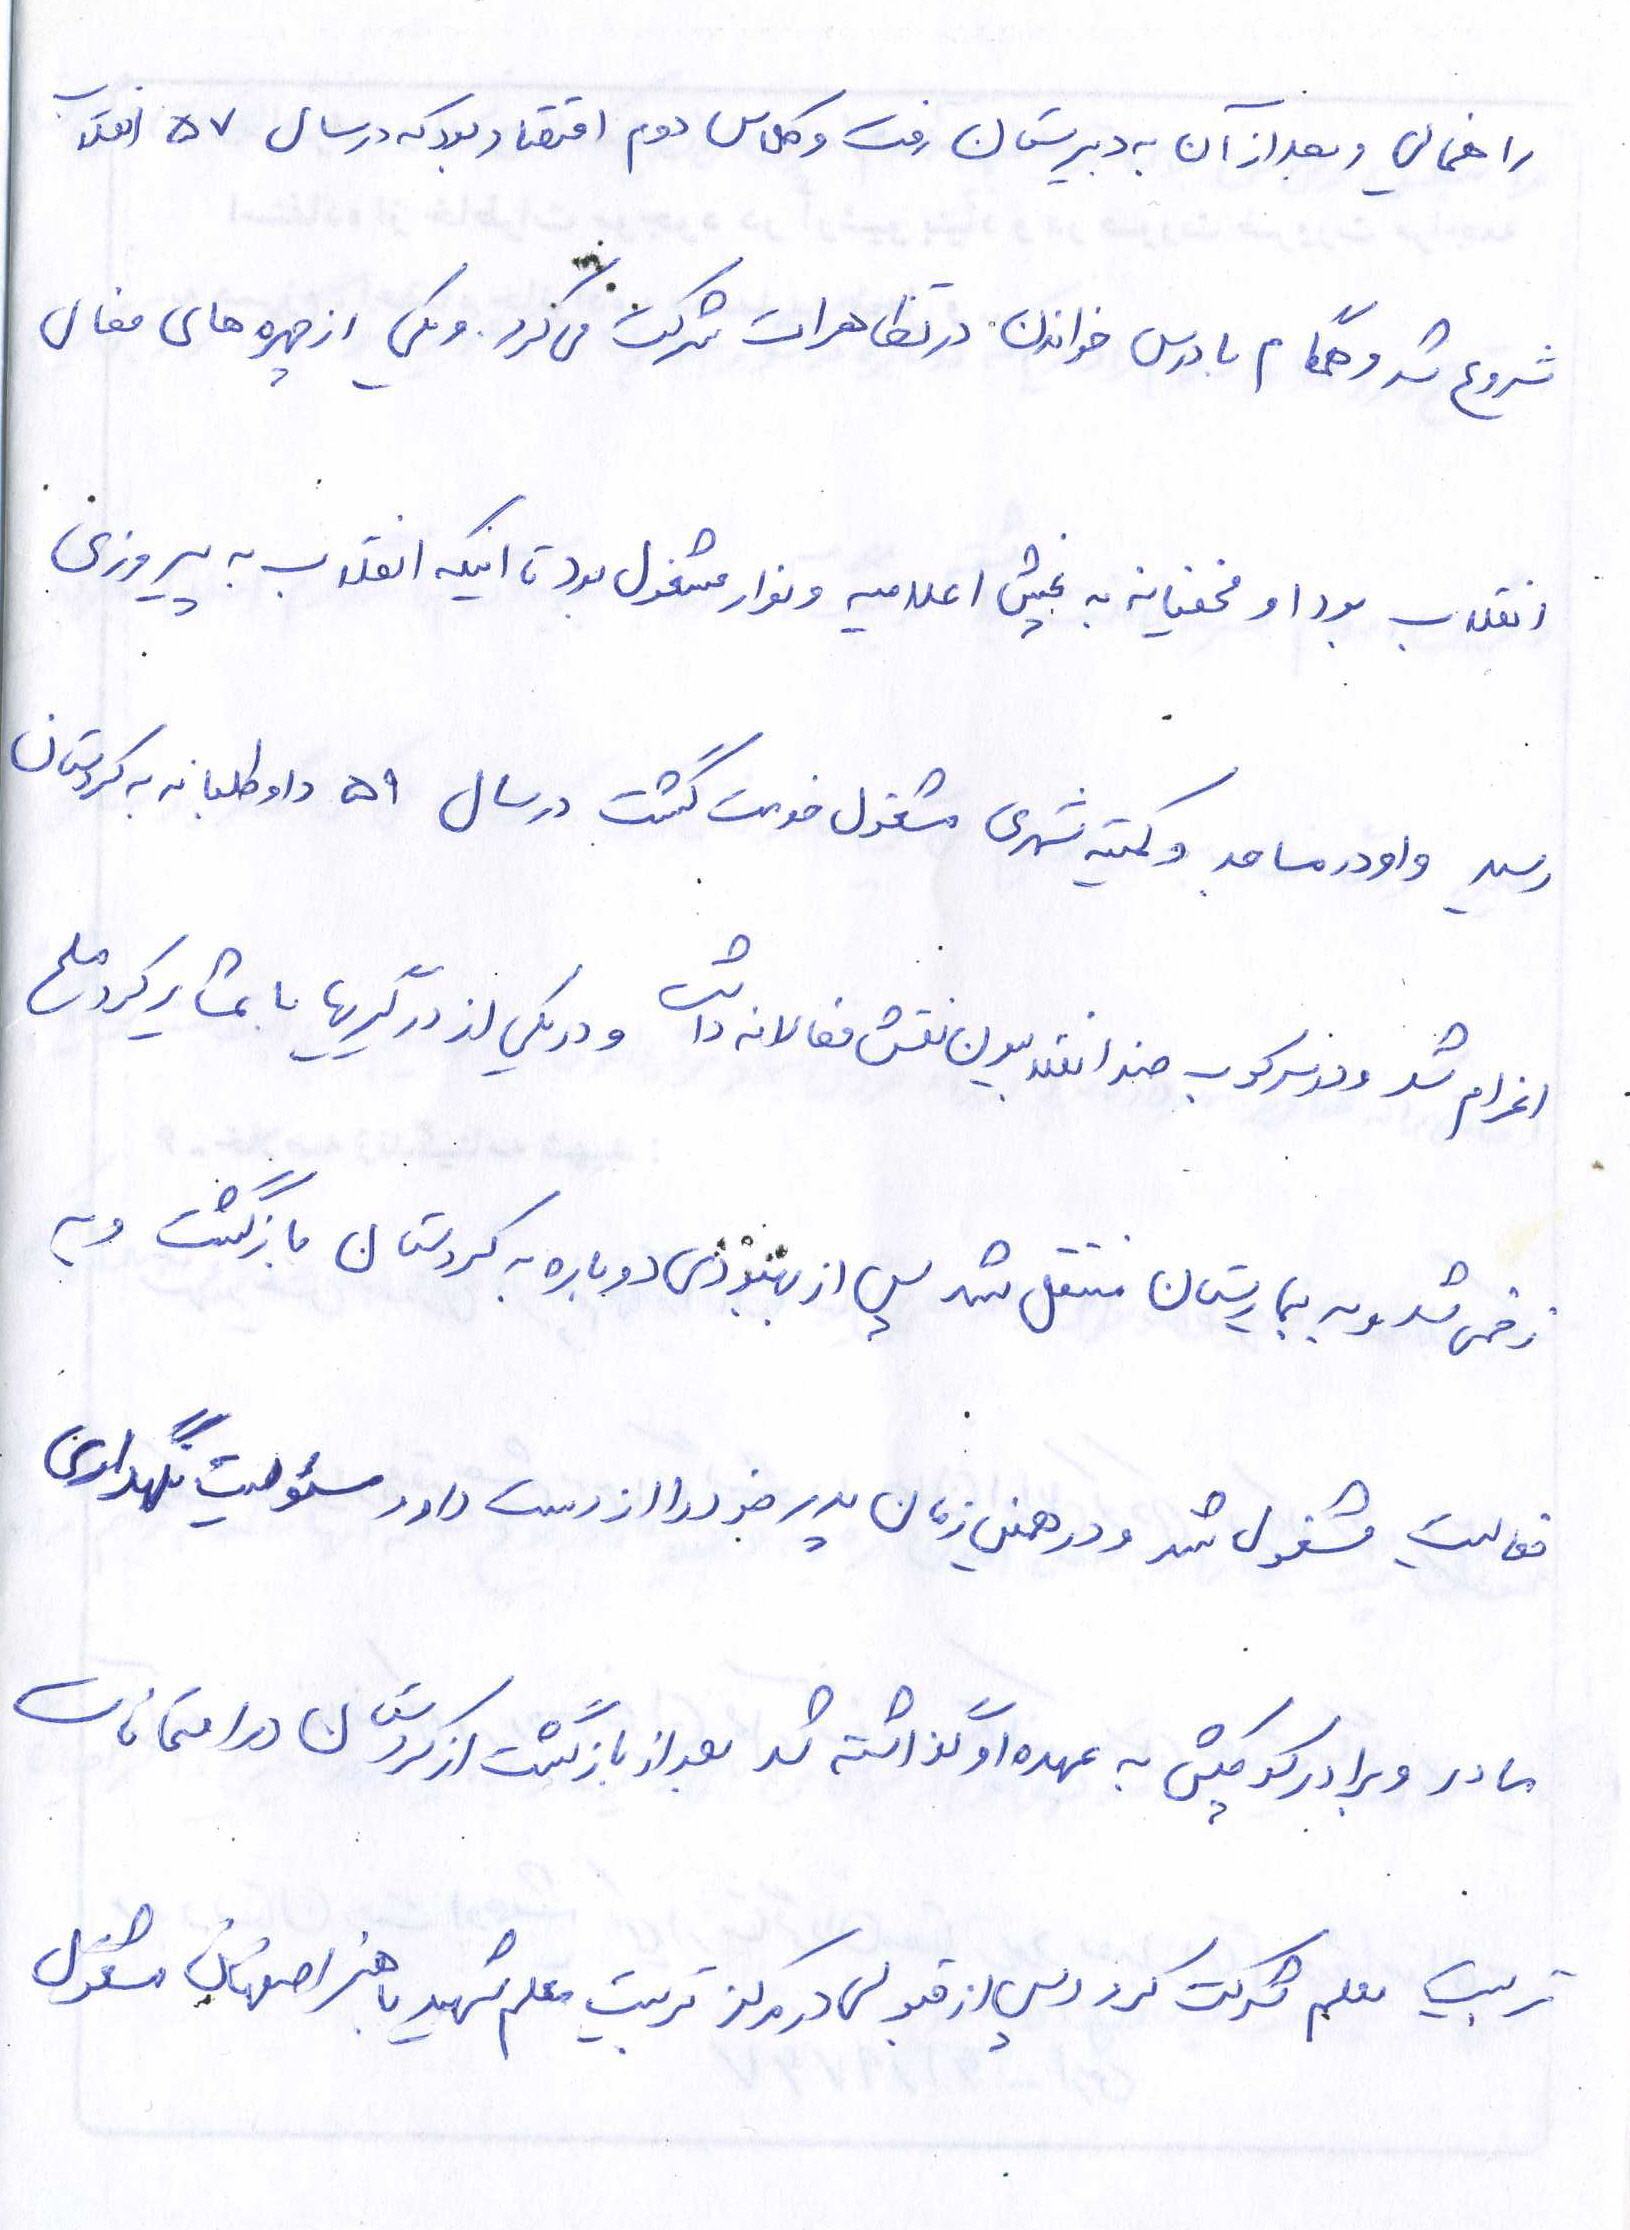 راهنمائی و بعد از آن به دبیرستان رفت و کلاس دوم اقتصاد بود که در سال ۵۷ انقلاب
شروع شد و همگام با درس خواندن در تظاهرات شرکت می کرد. و یکی از چهره های فعال
انقلاب بود او مخفیانه به پخش اعلامیه و نوار مشغول بود تا اینکه انقلاب به پیروزی
رسید و او در مساجد و کمیته شهری مشغول خدمت گشت در سال ۵۹ داوطلبانه به کردستان
اعزام شد و در سرکوب ضد انقلابیون نقش فعالانه داشت و در یکی از درگیریها با عشایر کرد مسلح
زخمی شد و به بیمارستان منتقل شد پس از بهبودی دوباره به کردستان بازگشت و به
فعالیت مشغول شد و در همین زمان پدر خود را از دست داد و مسئولیت نگهداری
مادر و برادر کوچکش به عهده او گذاشته شد بعد از بازگشت از کردستان در امتحانات
تربیت معلم شرکت کرد و پس از قبولی در مرکز تربیت معلم شهید باهنر اصفهان مشغول